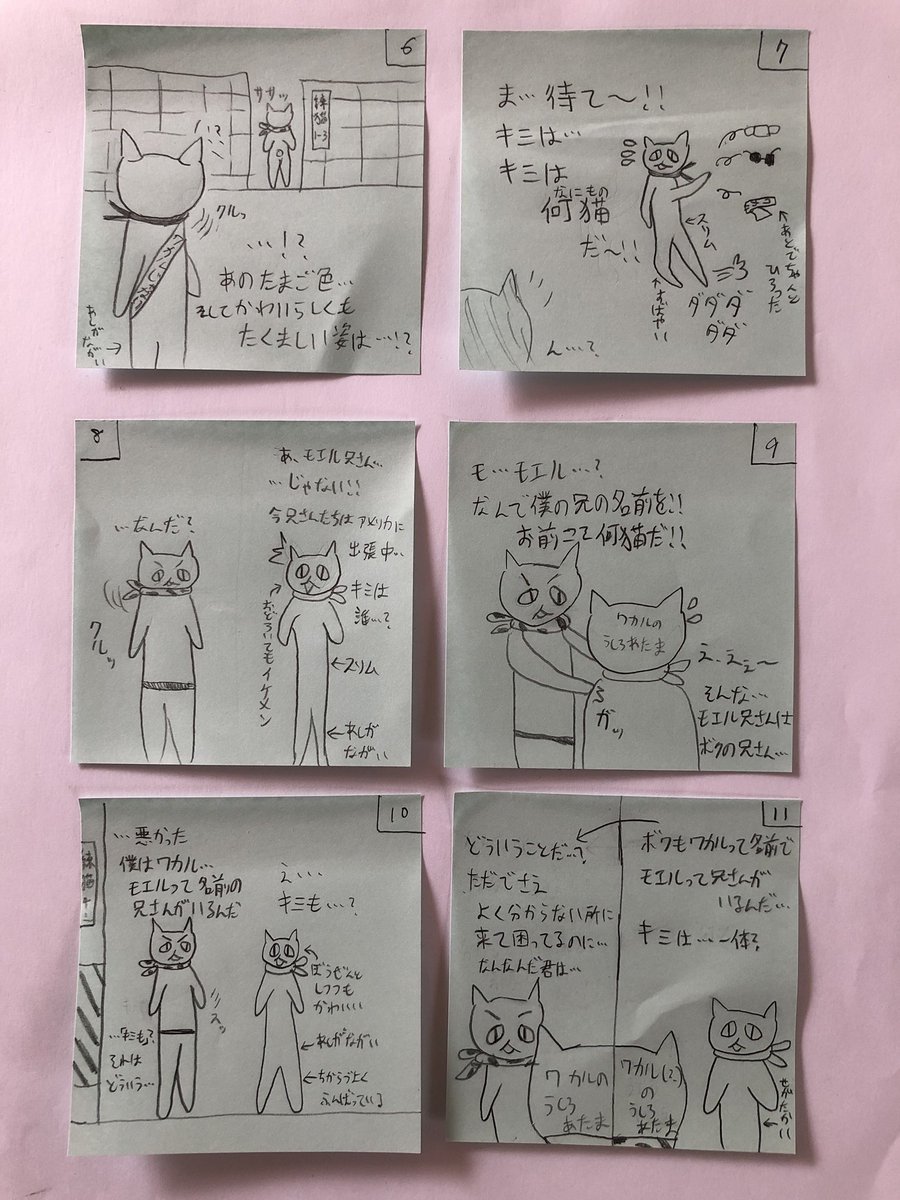 6
ササッ
練猫
1-3
!?
クルっ
…!?
あのたまご色…
そしてかわいらしくも
たくましい姿は…!?
あしが
ながい
7
ま…待て〜!!
キミは…
キミは
なにもの
何猫
だ〜!!
スリム
すばやい
ダダダ
ダダ
あとでちゃんと
ひろった
ん…?
8
…なんだ?
クルッ
あ、モエル兄さん…
…じゃない!!
今兄さんたちはアメリカに
出張中…
キミは
誰…?
おどろいてもイケメン
スリム
あしが
ながい
9
モ…モエル…?
なんで僕の兄の名前を!!
お前こそ何猫だ!!
ワカルの
うしろあたま
ガッ
え、えぇ〜
そんな…
モエル兄さんは
ボクの兄さん…
10
…悪かった
僕はワカル…
モエルって名前の
兄さんがいるんだ
練猫
スッ
…「キミも」?
それは
どういう…
え…
キミも…?
ぼうぜんと
しつつも
かわいい
あしがながい
ちからづよく
ふんばっている
11
ボクもワカルって名前で
モエルって兄さんが
いるんだ…
キミは…一体?
ワカル(?)
の
うしろ
あたま
せがたかい
どういうことだ…?
ただでさえ
よく分からない所に
来て困ってるのに…
なんなんだ君は…
ワカルの
うしろ
あたま